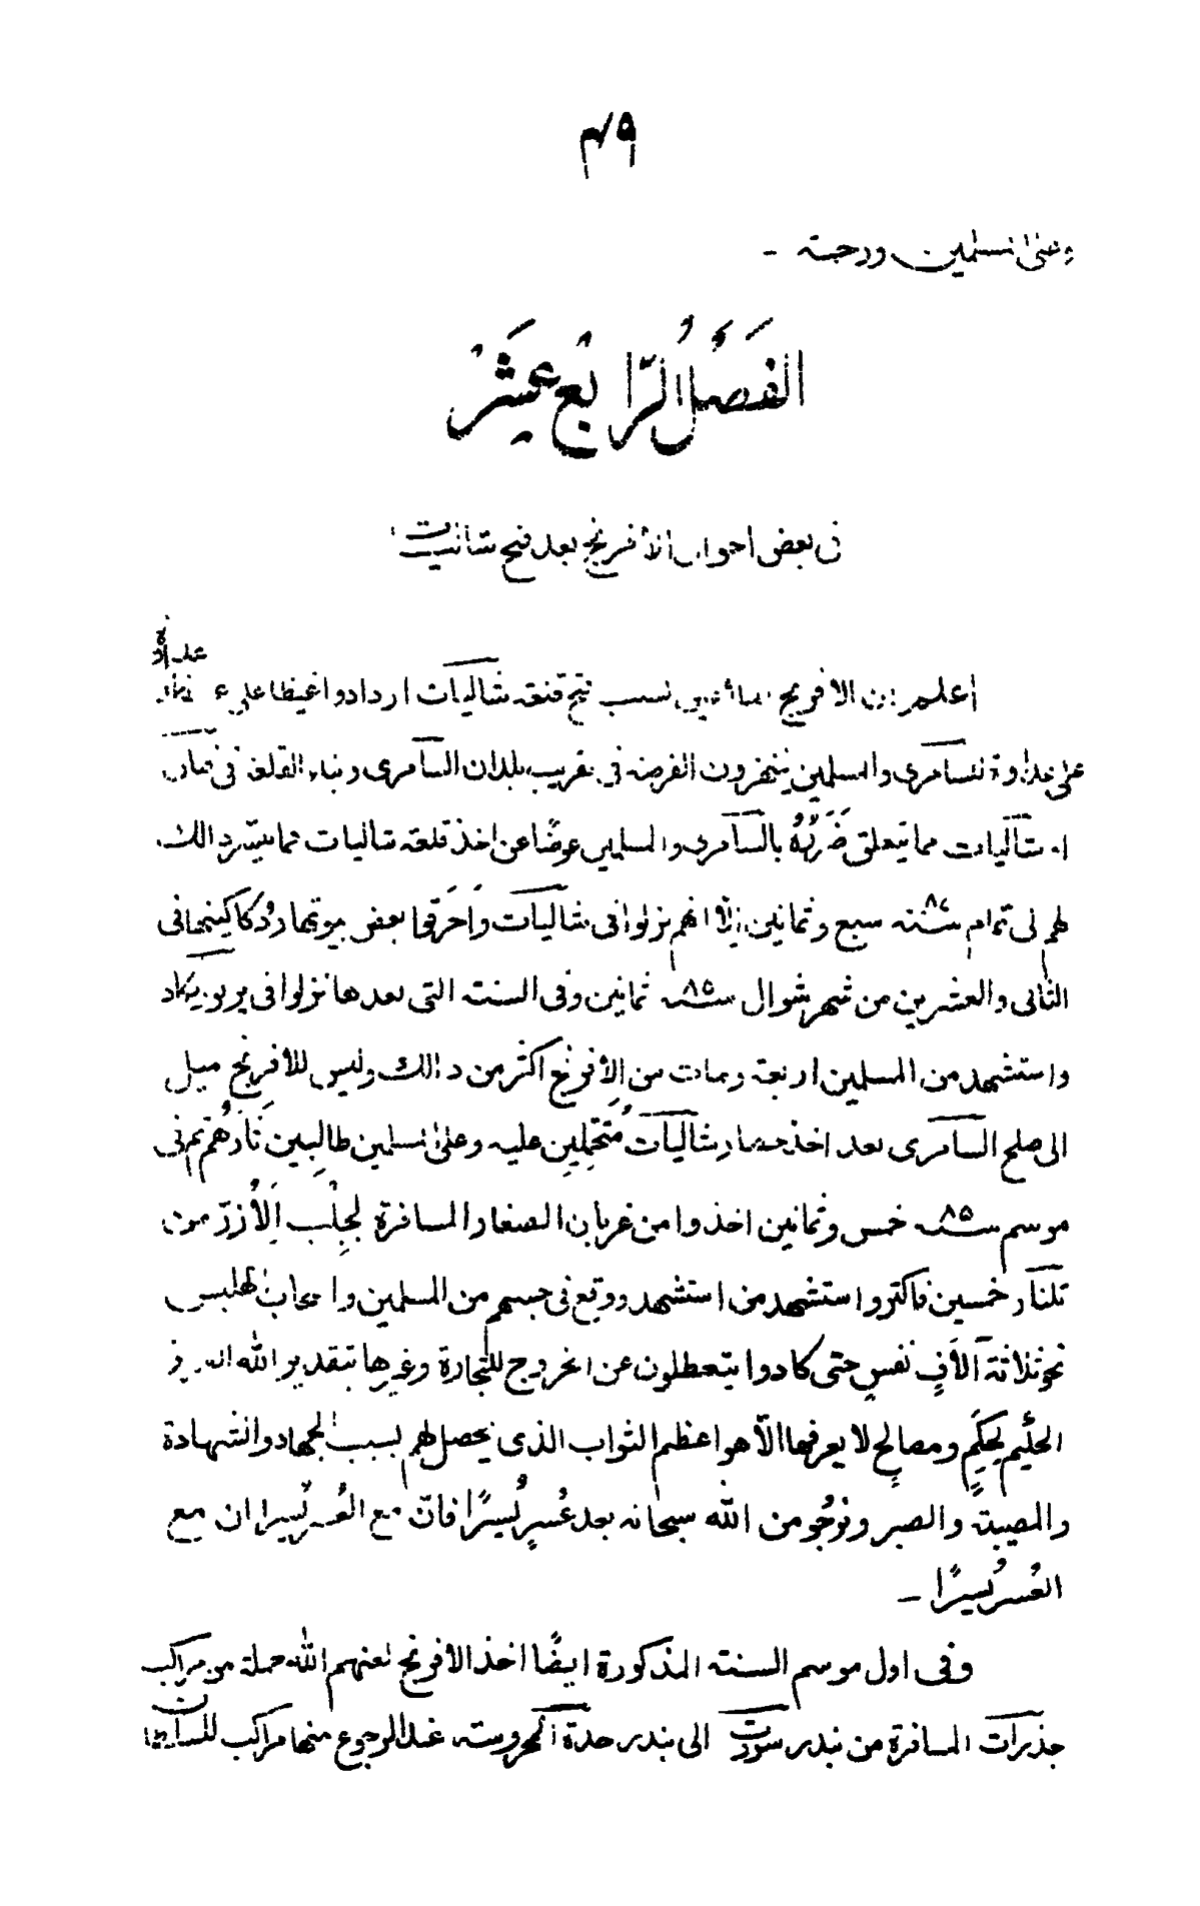 ٤٩
وعلى المسلمين ورحمته -
الفَصْلُ الرَّابِعُ عَشَرَ
في بعض احوال الأفرنج بعد فتح شاليات
اعلم ان الافرنج بسبب فتح قلعة شاليات ازدادوا غيظا على
على عداوة السامرى والمسلمين ينتهزون الفرصة في تخريب بلدان السامرى وبناء القلعة في
او شآليات مما يتعلق ضَرَرُهُ بالسآمرى والمسلمين عوضًا عن اخذ قلعة شاليات فما تيسّر ذالك
لهم الى تمام سنة ٨٧ سبع وثمانين إلاّ انهم نزلوا في شاليات وَاَحْرَقوا بعض بيوتها ودُكاكينها في
الثانى والعشرين من شهر شوال سنة ٨٥ ثمانين وفى السنة التى بعدها نزلوا في
واستشهد من المسلمين اربعة ومات من الأفرنج اكثر من ذالك وليس للأفرنج ميل
الى صلح السآمرى بعد اخذ حصار شاليآت مُتَحَمِّلين عليه وعلى المسلمين طالِبِين ثَارَهُم ثم في
موسم سنة ٨٥ خمس وثمانين اخذوا من غربان الصغار المسافرة لجَلْب الأُرزّ من
تلنار خمسين فاكثر واستشهد من استشهد ووقع في حبسهم من المسلمين واصحاب
نحو ثلاثة آلافِ نفسٍ حتى كادوا يتعطلون عن الخروج للتجارة وغيرها بتقدير الله العزيز
الحليم لحِكَمٍ ومصالحٍ لا يعرفها الاّ هو اعظم الثواب الذى يحصل لهم بسبب الجهاد والشهادة
والمصيبة والصبر ونرجُو من الله سبحانه بعد عُسرٍ يُسرًا فانّ مع العُسر يُسرا ان مع
العُسر يُسرًا -
وفى اول موسم السنة المذكورة ايضًا اخذ الأفرنج لعنهم الله جملة من مراكب
المسافرة من بندر سورت الى بندر جدة المحروسة عند الرجوع منها مراكب